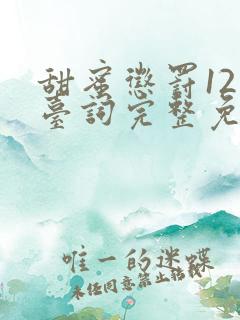 甜蜜懲罰12
臺詞完整免
唯一的迷蝶
未经同意禁止转载